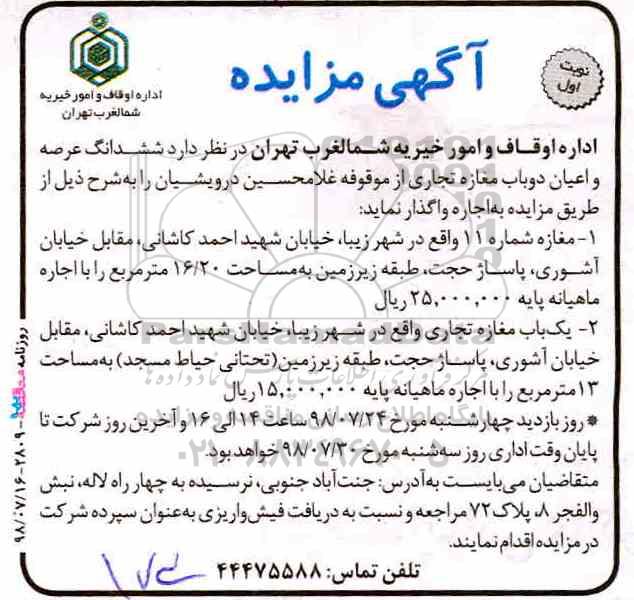 اداره اوقاف و امور خیریه
شمالغرب تهران
آگهی مزایده
نوبت
اول
اداره اوقاف و امور خیریه شمالغرب تهران در نظر دارد ششدانگ عرصه
و اعیان دوباب مغازه تجاری از موقوفه غلامحسین درویشیان را به‌شرح ذیل از
طریق مزایده به‌اجاره واگذار نماید:
۱- مغازه شماره ۱۱ واقع در شهر زیبا، خیابان شهید احمد کاشانی، مقابل خیابان
آشوری، پاساژ حجت، طبقه زیرزمین به‌مساحت ۱۶/۲۰ مترمربع را با اجاره
ماهیانه پایه ۲۵,۰۰۰,۰۰۰ ریال
۲- یک‌باب مغازه تجاری واقع در شهر زیبا، خیابان شهید احمد کاشانی، مقابل
خیابان آشوری، پاساژ حجت، طبقه زیرزمین (تحتانی حیاط مسجد) به‌مساحت
۱۳مترمربع را با اجاره ماهیانه پایه ۱۵,۰۰۰,۰۰۰ریال
* روز بازدید چهارشنبه مورخ ۹۸/۰۷/۲۴ ساعت ۱۴ الی ۱۶ و آخرین روز شرکت تا
پایان وقت اداری روز سه‌شنبه مورخ ۹۸/۰۷/۳۰ خواهد بود.
متقاضیان می‌بایست به‌آدرس: جنت‌آباد جنوبی، نرسیده به چهار راه لاله، نبش
والفجر ۸، پلاک ۷۲ مراجعه و نسبت به دریافت فیش‌واریزی به‌عنوان سپرده شرکت
در مزایده اقدام نمایند.
تلفن تماس: ۴۴۴۷۵۵۸۸
روزنامه
۹۸/۰۷/۱۶-۲۸۰۹
۰۲۱-۸۸۳۴۹۶۷۰-۵